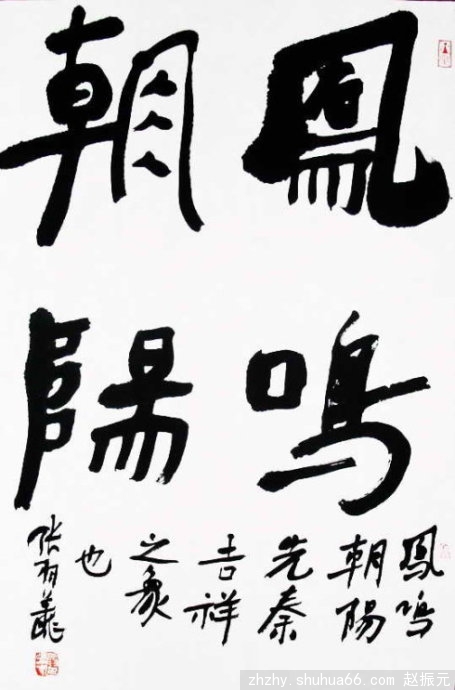 鳳鳴
朝陽
鳳鳴
朝陽
先秦
吉祥
之象
也
張有義
zhzhy.shuhua66.com 赵振元